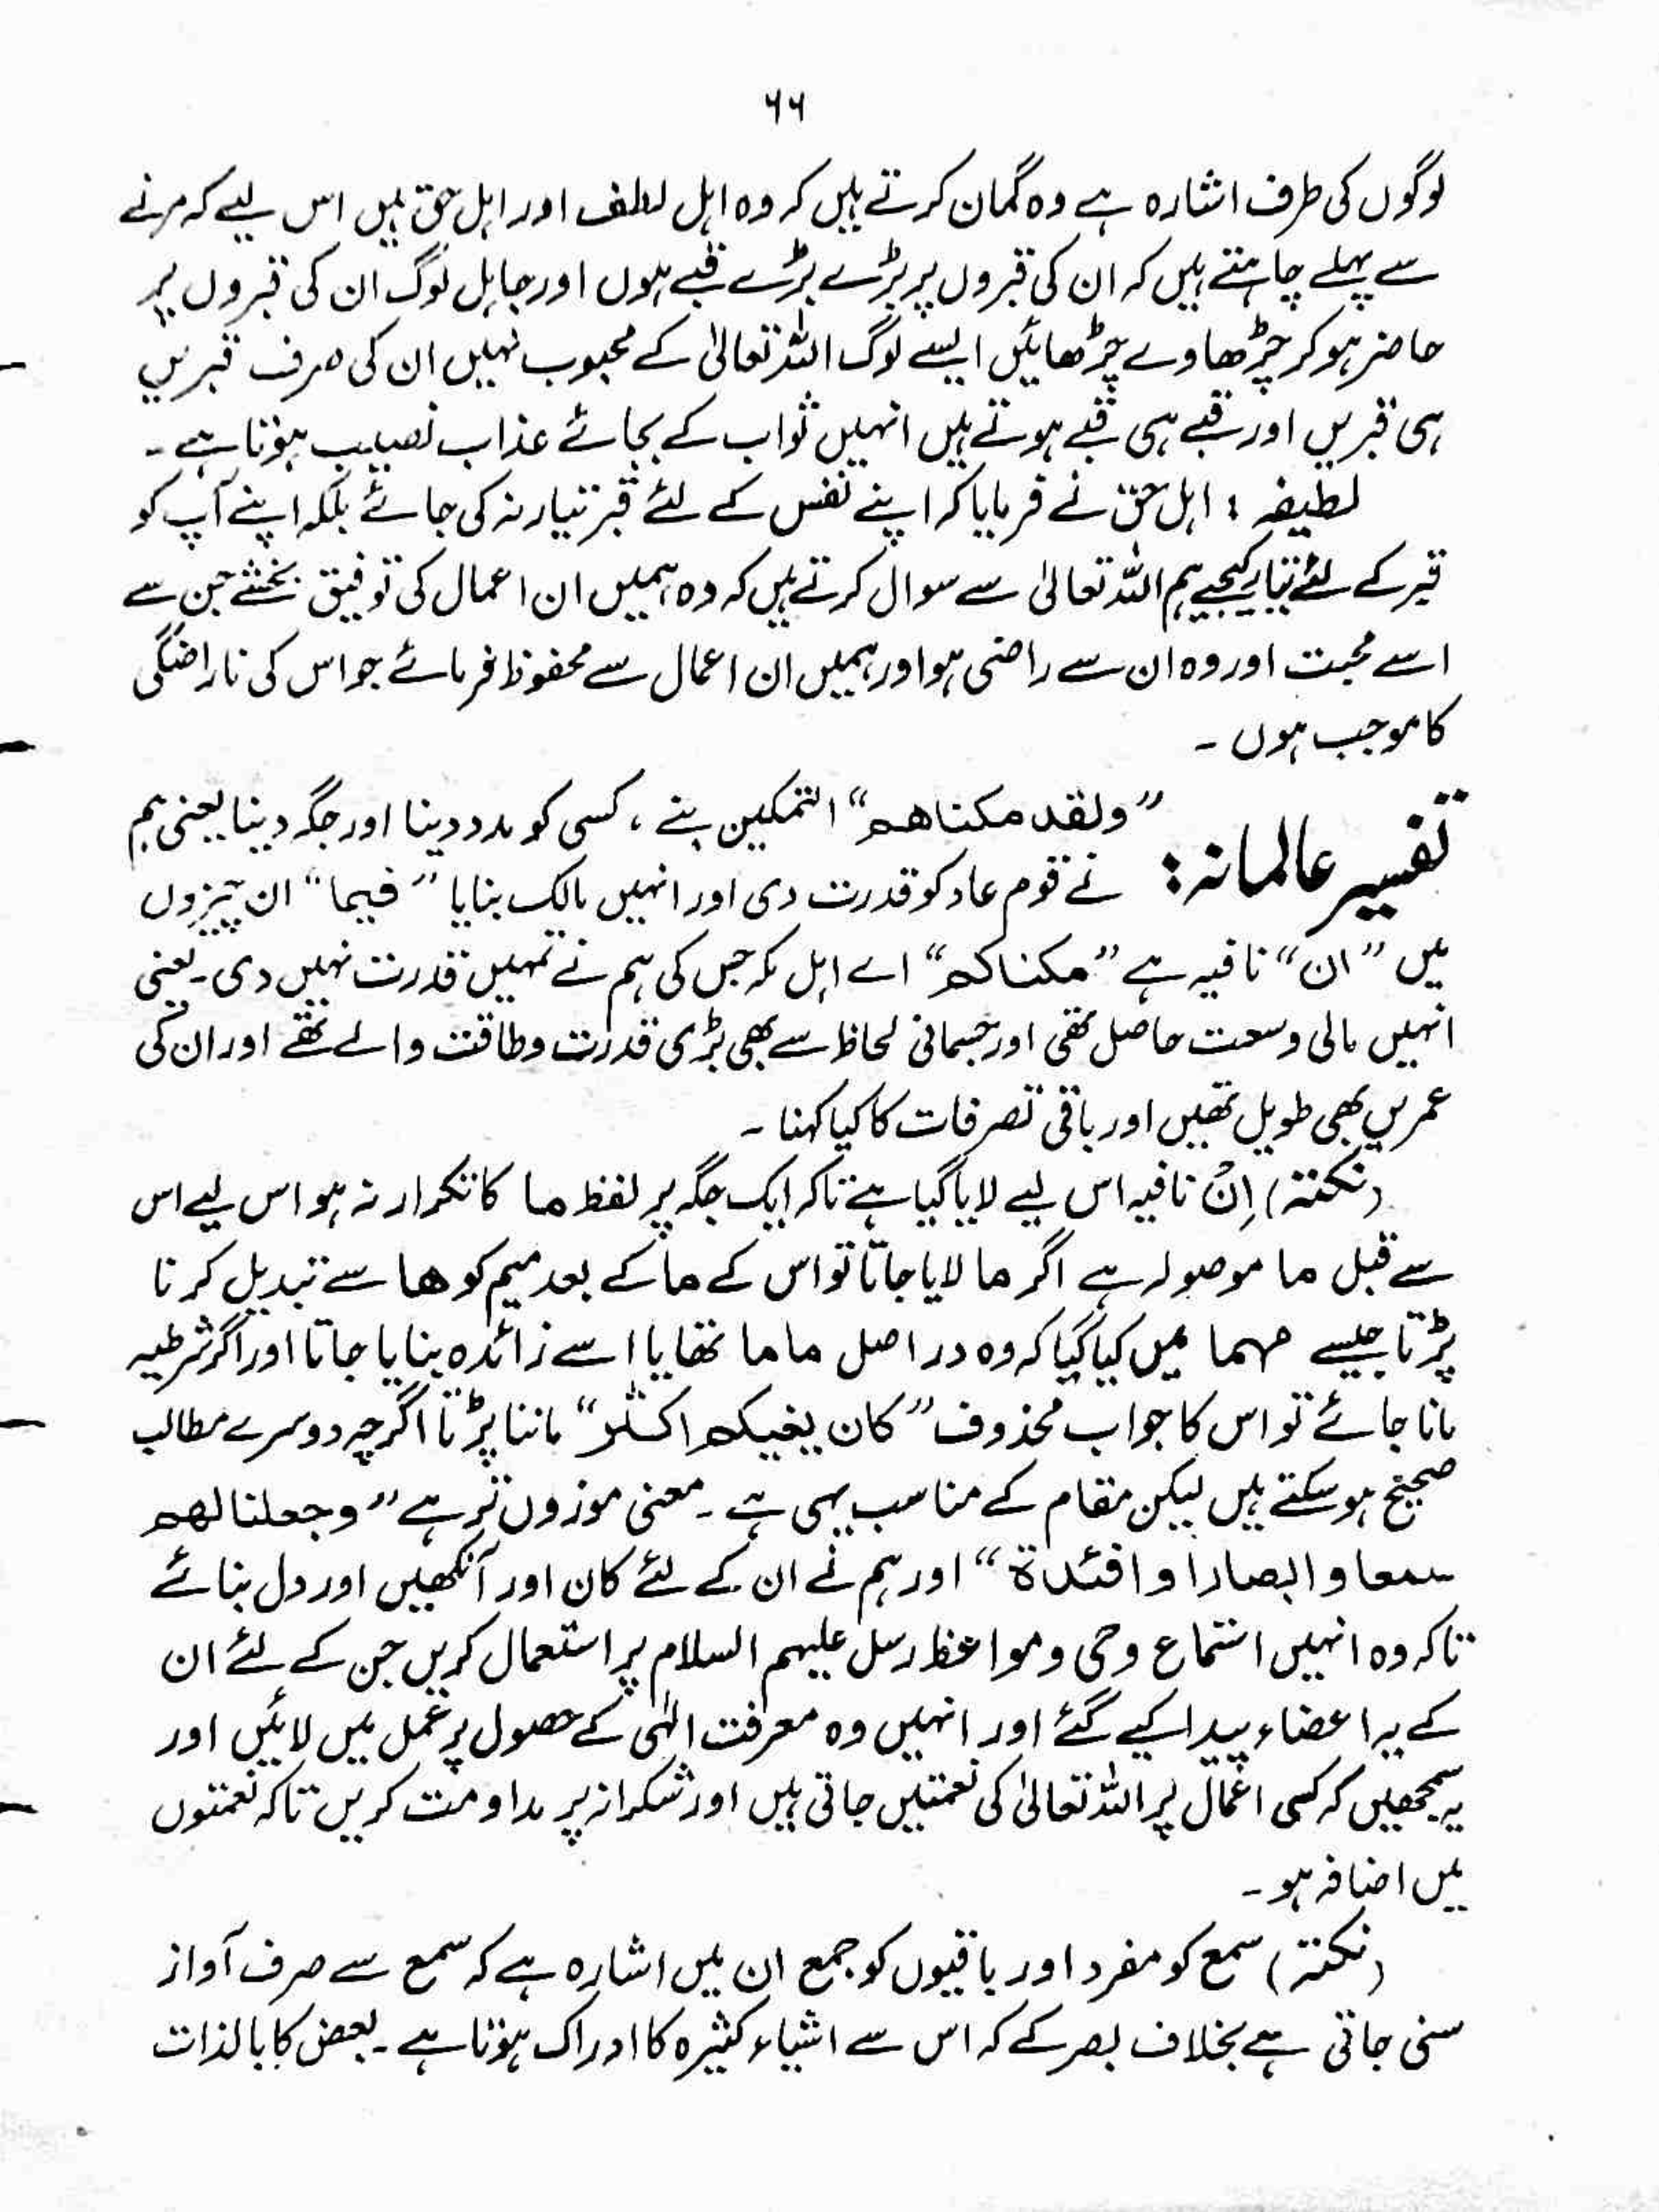 ۶۶
لوگوں کی طرف اشارہ ہے وہ گمان کرتے ہیں کہ وہ اہل لطف اور اہل حق ہیں اس لیے کہ مرنے
سے پہلے چاہتے ہیں کہ ان کی قبروں پر بڑے بڑے قبے ہوں اور جاہل لوگ ان کی قبروں پر
حاضر ہو کر چڑھاوے چڑھائیں ایسے لوگ اللہ تعالیٰ کے محبوب نہیں ان کی صرف قبریں
ہی قبریں اور قبے ہی قبے ہوتے ہیں انہیں ثواب کے بجائے عذاب نصیب ہوتا ہے ۔
لطیفہ : اہل حق نے فرمایا کہ اپنے نفس کے لئے قبر تیار نہ کی جائے بلکہ اپنے آپ کو
قبر کے لئے تیار کیجیے ہم اللہ تعالیٰ سے سوال کرتے ہیں کہ وہ ہمیں ان اعمال کی توفیق بخشے جن سے
اسے محبت اور وہ ان سے راضی ہو اور ہمیں ان اعمال سے محفوظ فرمائے جو اس کی ناراضگی
کا موجب ہوں ۔
تفسیر عالمانہ : ”ولقد مکناھم“ التمکین بنے ، کسی کو مدد دینا اور جگہ دینا یعنی ہم
نے قوم عاد کو قدرت دی اور انہیں مالک بنایا ”فیما“ ان چیزوں
میں ”ان“ نافیہ ہے ”مکناکم“ اے اہل مکہ جس کی ہم نے تمہیں قدرت نہیں دی ۔ یعنی
انہیں مالی وسعت حاصل تھی اور جسمانی لحاظ سے بھی بڑی قدرت وطاقت والے تھے اور ان کی
عمریں بھی طویل تھیں اور باقی تصرفات کا کیا کہنا ۔
(نکتہ) اِنْ نافیہ اس لیے لایا گیا ہے تاکہ ایک جگہ پر لفظ ما کا تکرار نہ ہو اس لیے اس
سے قبل ما موصولہ ہے اگر ما لایا جاتا تو اس کے ما کے بعد میم کو ھا سے تبدیل کرنا
پڑتا جیسے مہما میں کیا گیا کہ وہ دراصل ماما تھا یا اسے زائدہ بنایا جاتا اور اگر شرطیہ
مانا جائے تو اس کا جواب محذوف ”کان بغیکم اکثر“ ماننا پڑتا اگرچہ دوسرے مطالب
صحیح ہو سکتے ہیں لیکن مقام کے مناسب یہی ہے ۔ معنی موزوں تر ہے ”وجعلنا لھم
سمعا وابصارا وافئدۃ“ اور ہم نے ان کے لئے کان اور آنکھیں اور دل بنائے
تاکہ وہ انہیں استماع وحی ومواعظ رسل علیہم السلام پر استعمال کریں جن کے لئے ان
کے یہ اعضاء پیدا کیے گئے اور انہیں وہ معرفت الٰہی کے حصول پر عمل میں لائیں اور
یہ سمجھیں کہ کسی اعمال پر اللہ تعالیٰ کی نعمتیں جاتی ہیں اور شکرانہ پر مداومت کریں تاکہ نعمتوں
میں اضافہ ہو ۔
(نکتہ) سمع کو مفرد اور باقیوں کو جمع ان میں اشارہ ہے کہ سمع سے صرف آواز
سنی جاتی ہے بخلاف بصر کے کہ اس سے اشیاء کثیرہ کا ادراک ہوتا ہے ۔ بعض کا بالذات